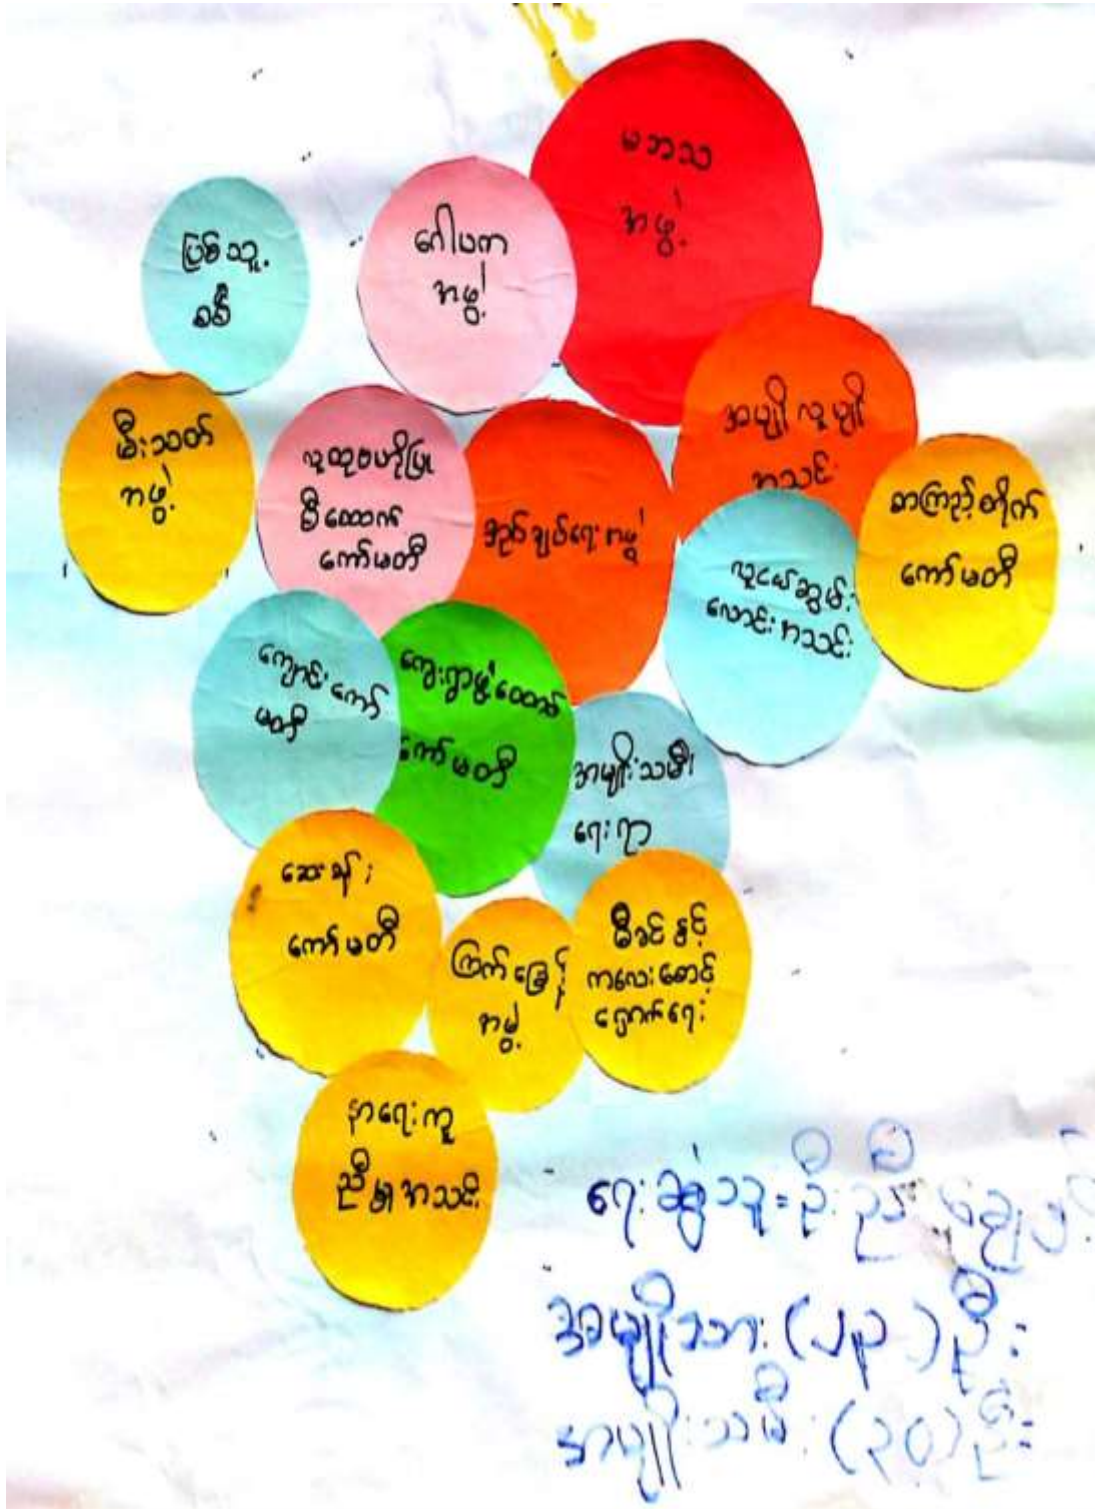 မဘသ
အဖွဲ့
ဂေါပက
အဖွဲ့
ပြစ်သူ့
စစ်
မီးသတ်
အဖွဲ့
လူထုဗဟိုပြု
စီထောက်
ကော်မတီ
အုပ်ချုပ်ရေးအဖွဲ့
အမျိုလူမျို
အသင်း
စာကြည့်တိုက်
ကော်မတီ
လူငယ်ဆွမ်း
လောင်းအသင်း
ကျောင်းကော်
မတီ
ကျေးရွာဖွံ့ထောက်
ကော်မတီ
အမျိုးသမီး
ရေးရာ
ဆေးခန်း
ကော်မတီ
ကြက်ခြေနီ
အဖွဲ့
မီခင်နှင့်
ကလေးစောင့်
ရှောက်ရေး
နာရေးကူ
ညီမှုအသင်း
ရေးဆွဲသူ=ဦး
အမျိုးသား (၂၃) ဦး
အမျိုးသမီး (၃၀) ဦး